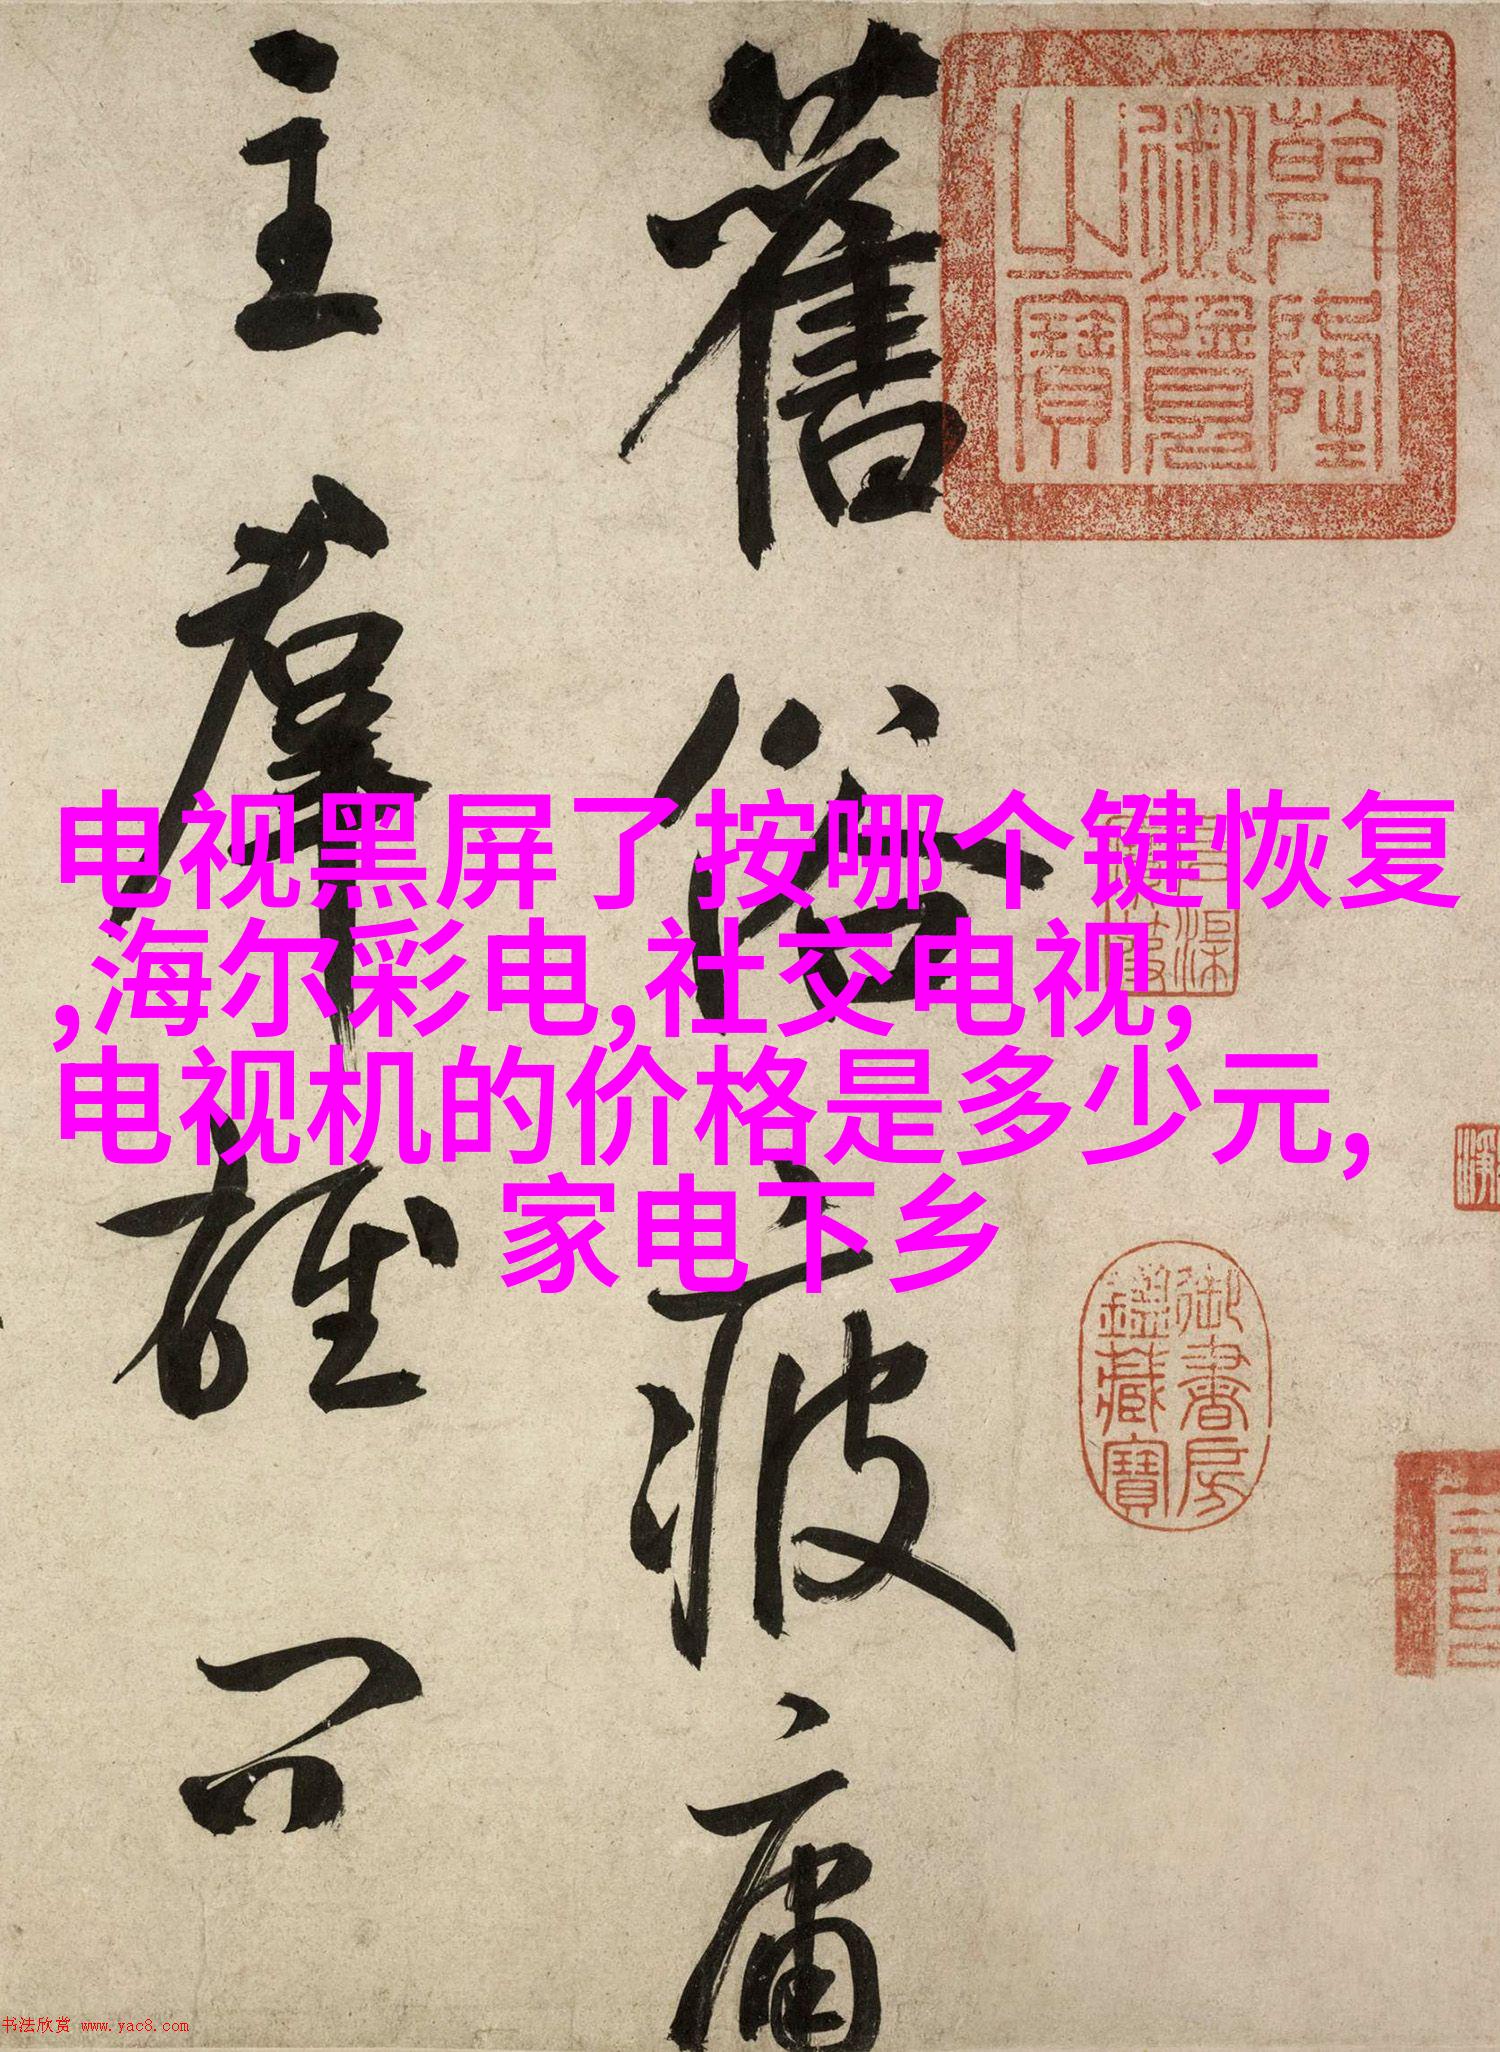 舊俗疲庸
主羣雄只
乾隆
御覽
之寶
御書房
鑑藏寶
电视黑屏了按哪个键恢复
,海尔彩电,社交电视,
电视机的价格是多少元,
家电下乡
书法欣赏 www.yac8.com